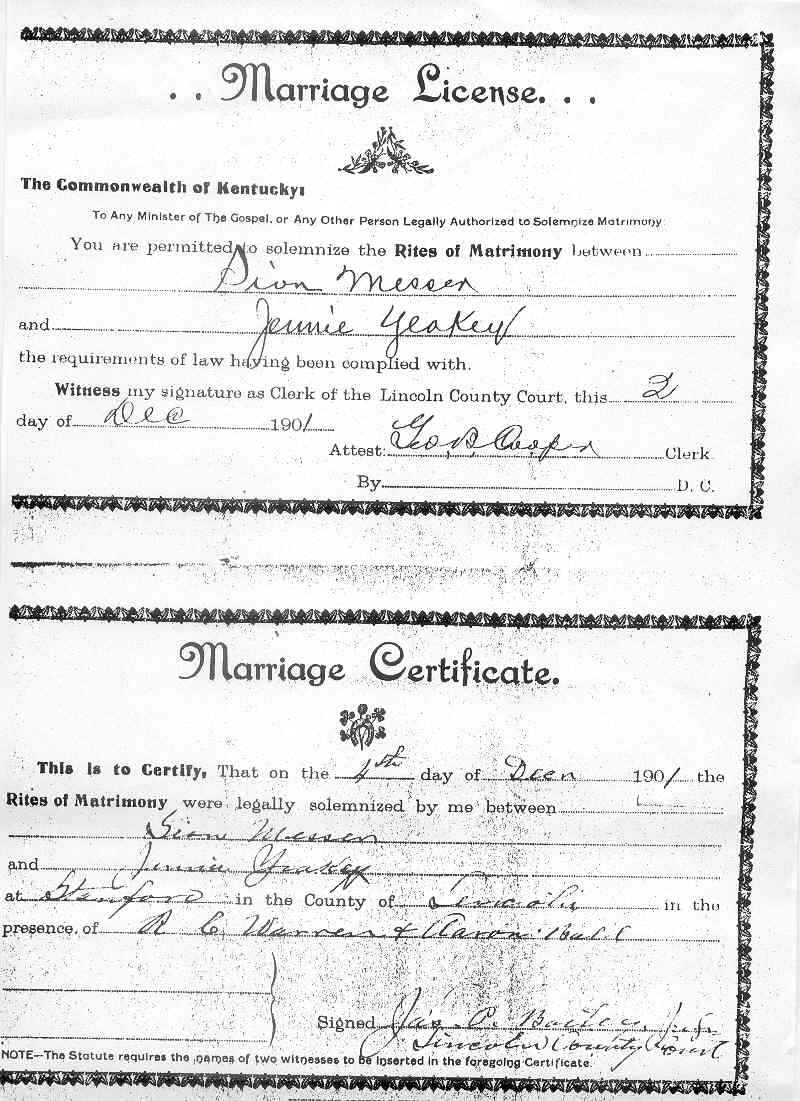 . . Marriage License. . .
The Commonwealth of Kentucky:
To Any Minister of The Gospel, or Any Other Person Legally Authorized to Solemnize Matrimony:
You are permitted to solemnize the Rites of Matrimony between
Sion Messer
and Jennie Yeakey
the requirements of law having been complied with.
Witness my signature as Clerk of the Lincoln County Court, this 2
day of Dec 1901
Attest: Geo B. Cooper Clerk
By D. C.
Marriage Certificate.
This is to Certify, That on the 4th day of Decm 1901 the
Rites of Matrimony were legally solemnized by me between
Sion Messer
and Jennie Yeakey
at Stanford in the County of Lincoln in the
presence of R C Warren & Aaron
Signed Jas. P. Bailey
Lincoln County Court
NOTE—The Statute requires the names of two witnesses to be inserted in the foregoing Certificate.